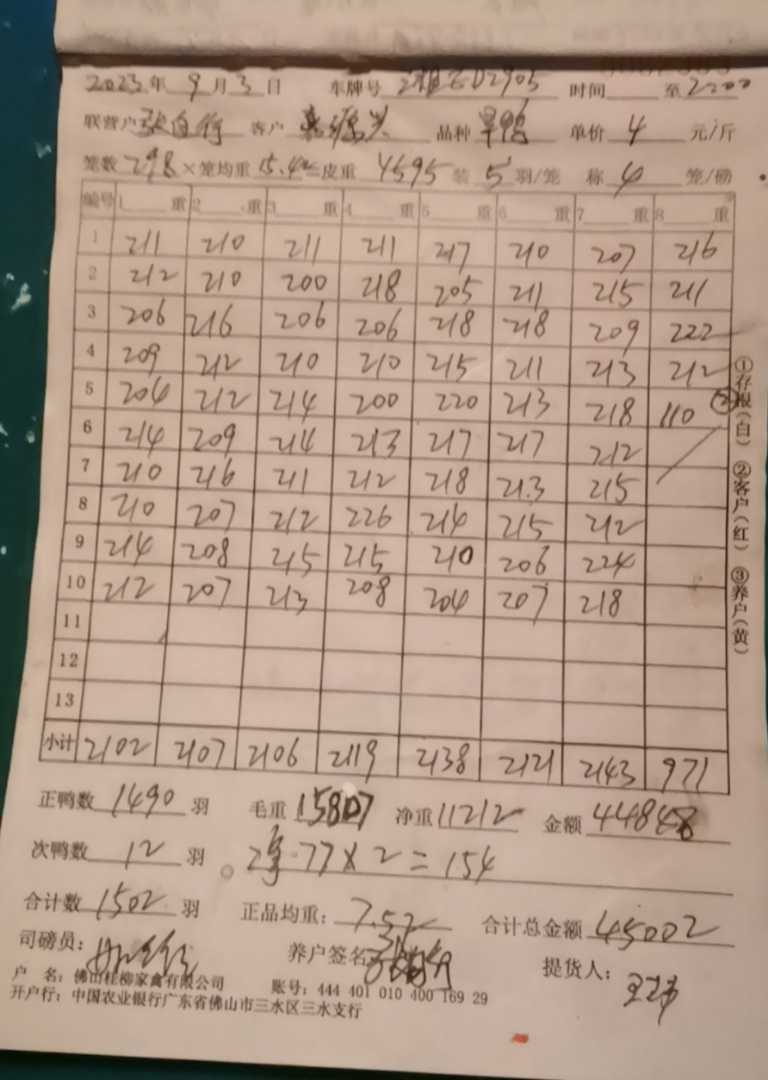 2023年 9月 3日 车牌号 时间 至2200
联营户 客户 品种 旱鸭 单价 4 元/斤
笼数 298 ×笼均重 15.42 =皮重 4595 装 5 羽/笼 称 4 笼/磅
编号 1 重 2 重 3 重 4 重 5 重 6 重 7 重 8 重
1 211 210 211 211 217 210 207 216
2 212 210 200 218 205 211 215 211
3 206 216 206 206 218 218 209 222
4 209 212 210 210 215 211 213 212
5 204 212 214 200 220 213 218 110 ②
6 214 209 214 213 217 217 212
7 210 216 211 212 218 213 215
8 210 207 212 226 214 215 212
9 214 208 215 215 210 206 224
10 212 207 213 208 204 207 218
11
12
13
小计 2102 2107 2106 2119 2138 2121 2143 971
①存根(白) ②客户(红) ③养户(黄)
正鸭数 1490 羽 毛重 15807 净重 11212 金额 44848
次鸭数 12 羽 77×2=154
合计数 1502 羽 正品均重: 7.52 合计总金额 45002
司磅员: 养户签名 提货人:
户 名: 佛山桂柳家禽有限公司 账号: 444 401 010 400 169 29
开户行: 中国农业银行广东省佛山市三水区三水支行